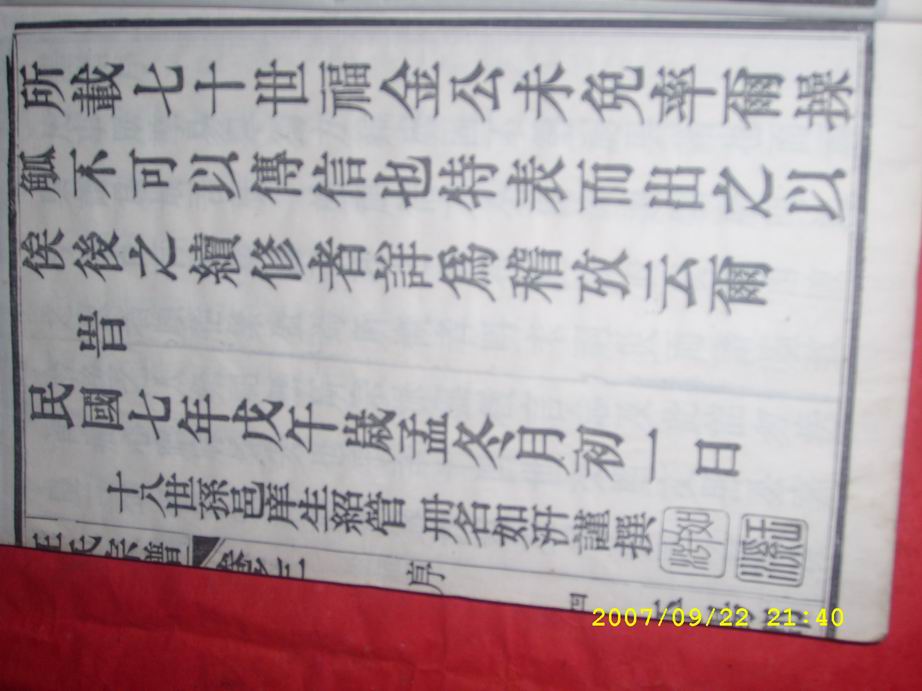 所載七十世福金公未免率爾操
觚不可以傳信也特表而出之以
俟後之續修者詳爲稽攷云爾
旹
民國七年戊午歲孟冬月初一日
十八世孫邑庠生紹管 冊名如謹撰
王氏宗譜
序
四
2007/09/22 21:40